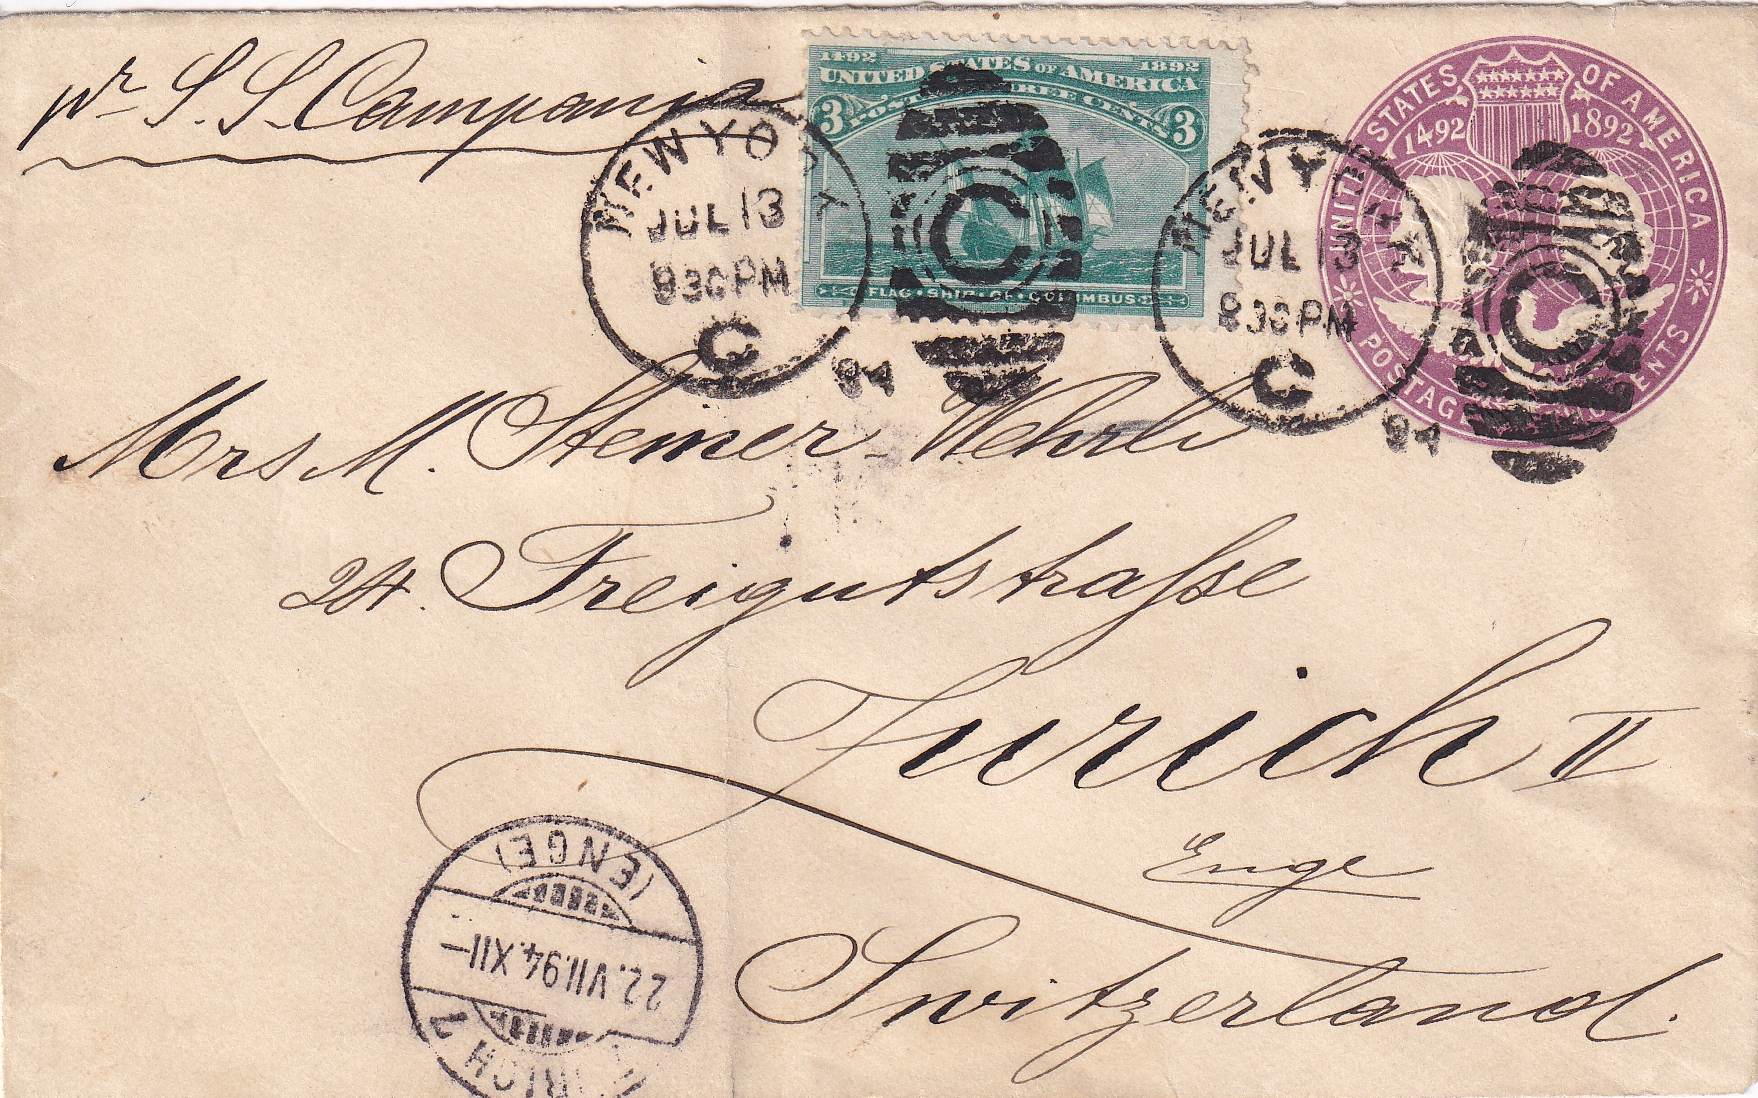 pr S.S. Campania
1492 1892
UNITED STATES OF AMERICA
POSTAGE THREE CENTS
3 3
FLAG • SHIP • OF • COLUMBUS
UNITED STATES OF AMERICA
1492 1892
POSTAGE CENTS
NEW YORK
JUL 13
830PM
C
94
C
NEW YORK
JUL 13
830PM
C
94
C
Mrs M. Stemer-Wehrli
24. Freigutstraſse
Zurich II
Enge
Switzerland.
ZÜRICH 2
22.VII.94.XII-
(ENGE)